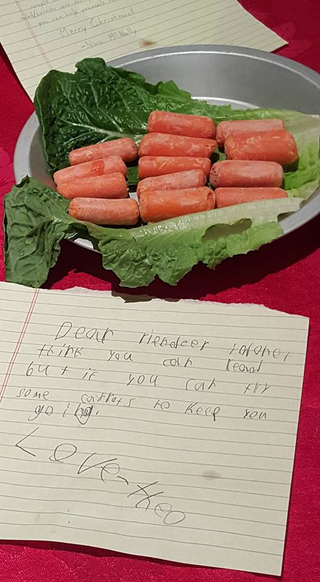 Merry Christmas!
Dear riendeer
think you can read
but if you can try
some carrots to keep you
going.
Love-theo